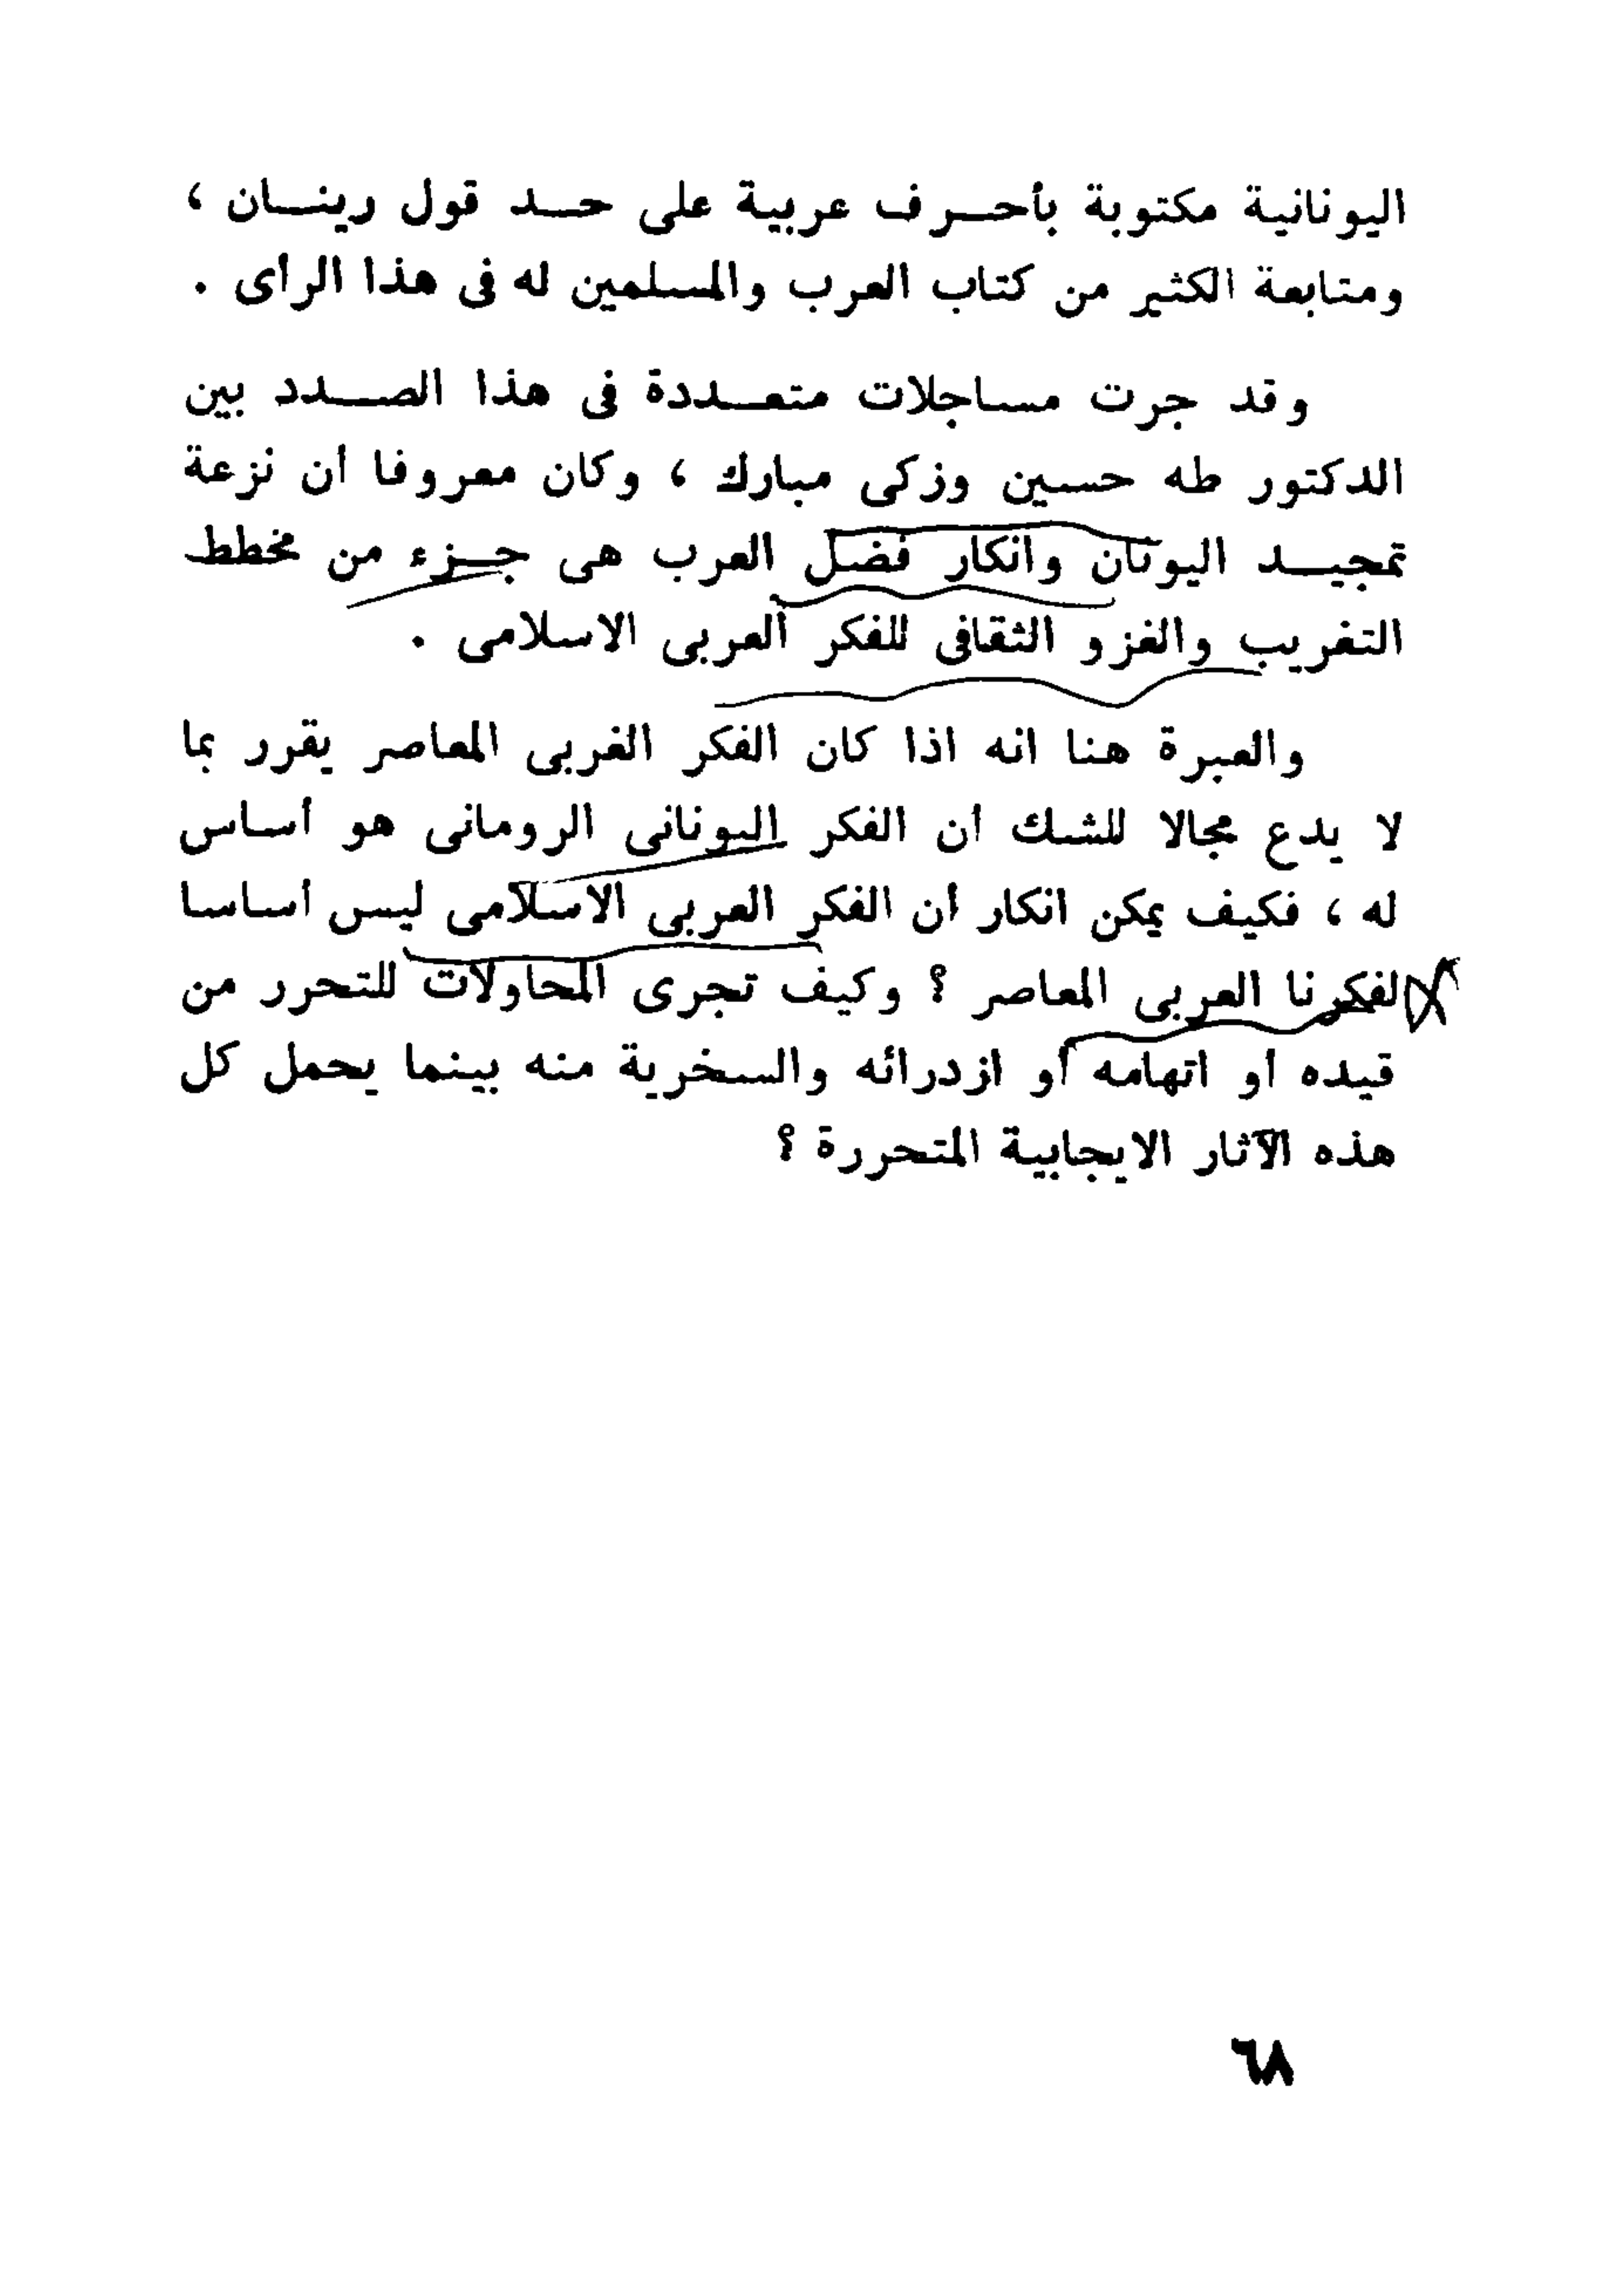 اليونانية مكتوبة بأحرف عربية على حد قول رينان ،
ومتابعة الكثير من كتاب العرب والمسلمين له فى هذا الرأى .
وقد جرت مساجلات متعددة فى هذا الصدد بين
الدكتور طه حسين وزكى مبارك ، وكان معروفا أن نزعة
تمجيد اليونان وانكار فضل العرب هى جزء من مخطط
التغريب والغزو الثقافى للفكر العربى الاسلامى .
والعبرة هنا انه اذا كان الفكر الغربى المعاصر يقرر بما
لا يدع مجالا للشك أن الفكر اليونانى الرومانى هو أساس
له ، فكيف يمكن انكار أن الفكر العربى الاسلامى ليس أساسا
لفكرنا العربى المعاصر ؟ وكيف تجرى المحاولات للتحرر من
قيده أو اتهامه أو ازدرائه والسخرية منه بينما يحمل كل
هذه الآثار الايجابية المتحررة ؟
٦٨